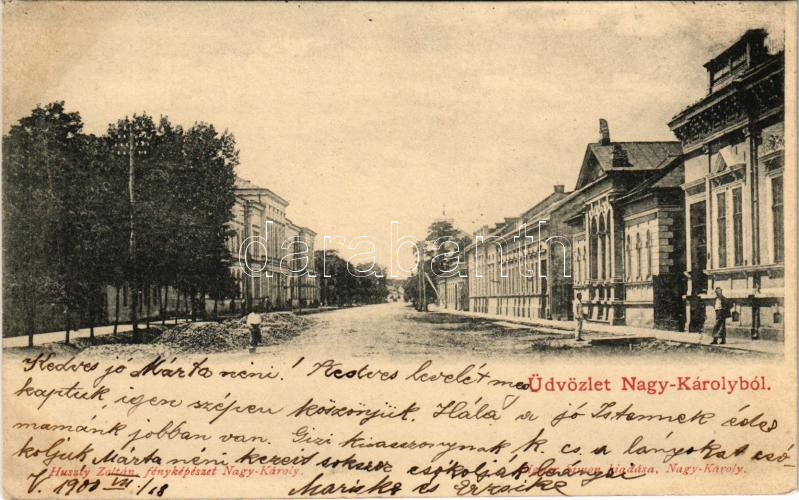 darabanth
Kedves jó Márta néni! Kedves levelét meg
Üdvözlet Nagy-Károlyból.
kaptuk igen szépen köszönjük. Hála a jó Istennek édes
mamánk jobban van. Gizi kisasszonynak k. cs. a lányokat csó-
koljuk Márta néni kezeit sokszor csókolják
Huszty Zoltán fényképészet Nagy-Károly.
kiadása, Nagy-Károly.
1900 VII/18
Mariska és Erzsike